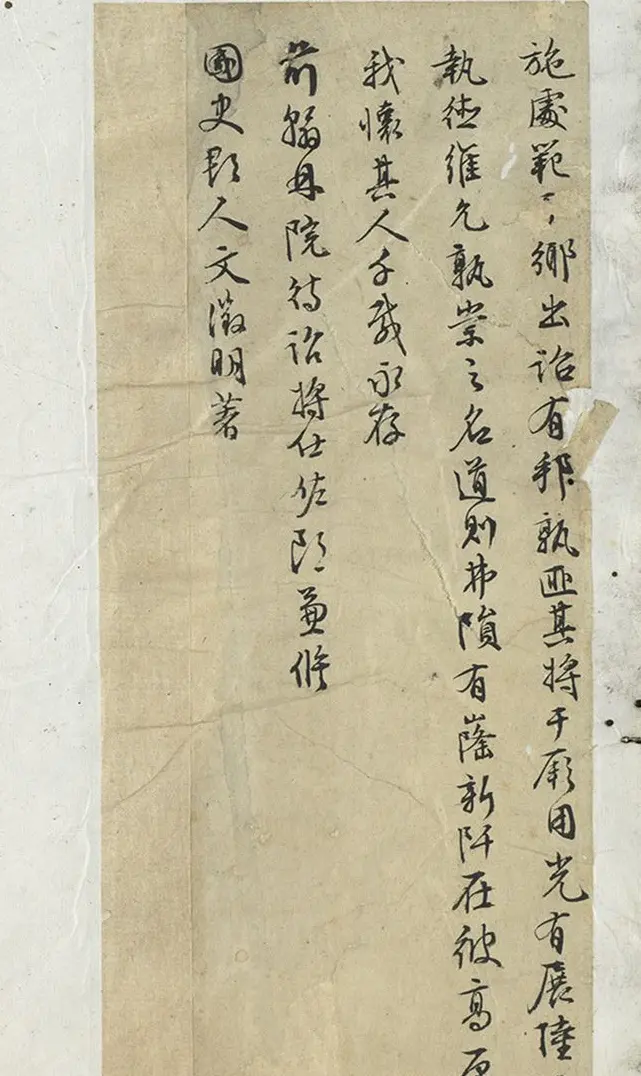 施處範〻鄉出詒有邦孰匪其將于厥用光有展陸
執德維允孰崇之名道則弗隕有隆新阡在彼高原
我懷其人千載永存
前翰林院待詔將仕佐郎兼修
國史郡人文徵明著